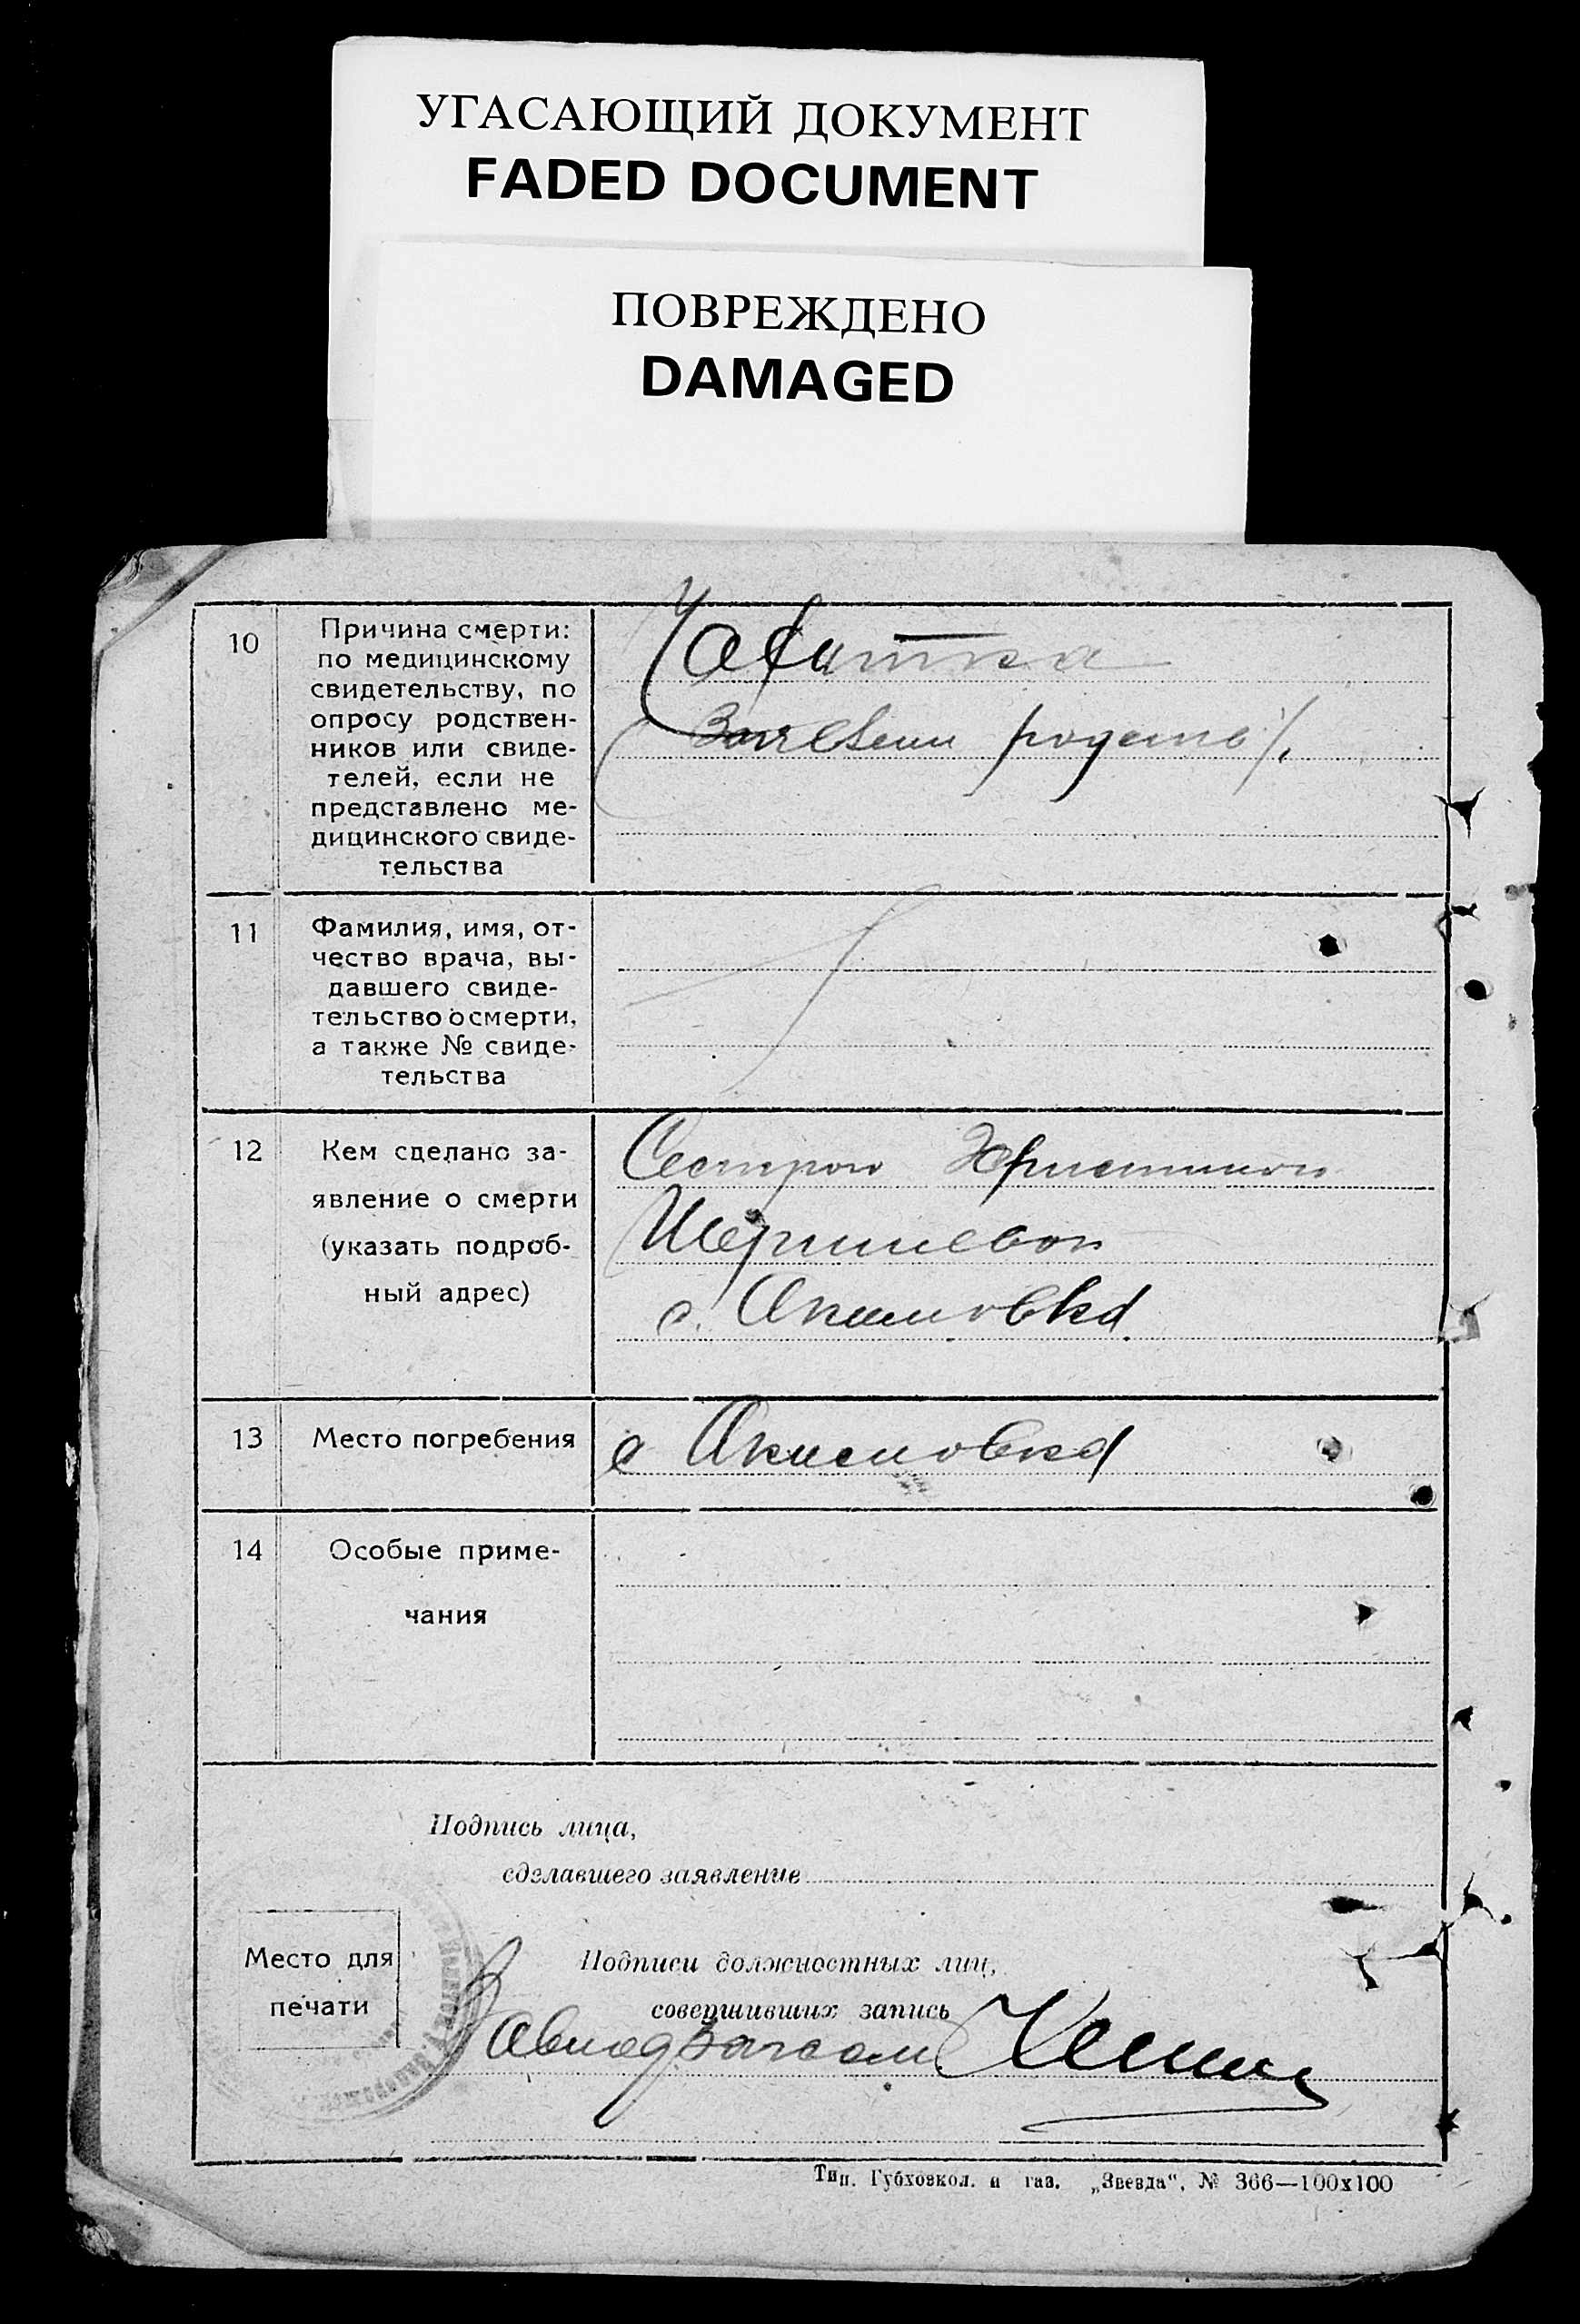 УГАСАЮЩИЙ ДОКУМЕНТ
FADED DOCUMENT
ПОВРЕЖДЕНО
DAMAGED
10
Причина смерти:
по медицинскому
свидетельству, по
опросу родствен-
ников или свиде-
телей, если не
представлено ме-
дицинского свиде-
тельства
Чахотка
11
Фамилия, имя, от-
чество врача, вы-
давшего свиде-
тельство о смерти,
а также № свиде-
тельства
12
Кем сделано за-
явление о смерти
(указать подроб-
ный адрес)
Сестрой Христиной
с. Акимовка
13
Место погребения
с Акимовка
14
Особые приме-
чания
Подпись лица,
сделавшего заявление
Место для
печати
Подписи должностных лиц,
совершивших запись
Тип. Губховкол. и газ. „Звезда“, № 366—100х100